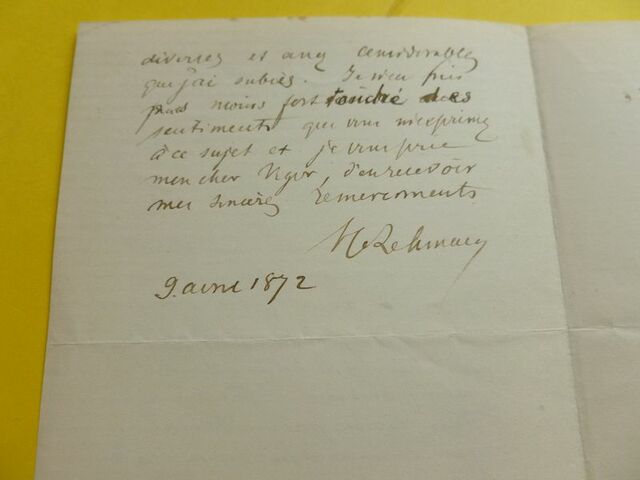 diverses et assez considérables
que j'ai subies. Je n'en suis
pas moins fort touché des
sentiments que vous m'exprimez
à ce sujet et je vous prie
mon cher Viger, d'en recevoir
mes sincères remerciments
9. avril 1872